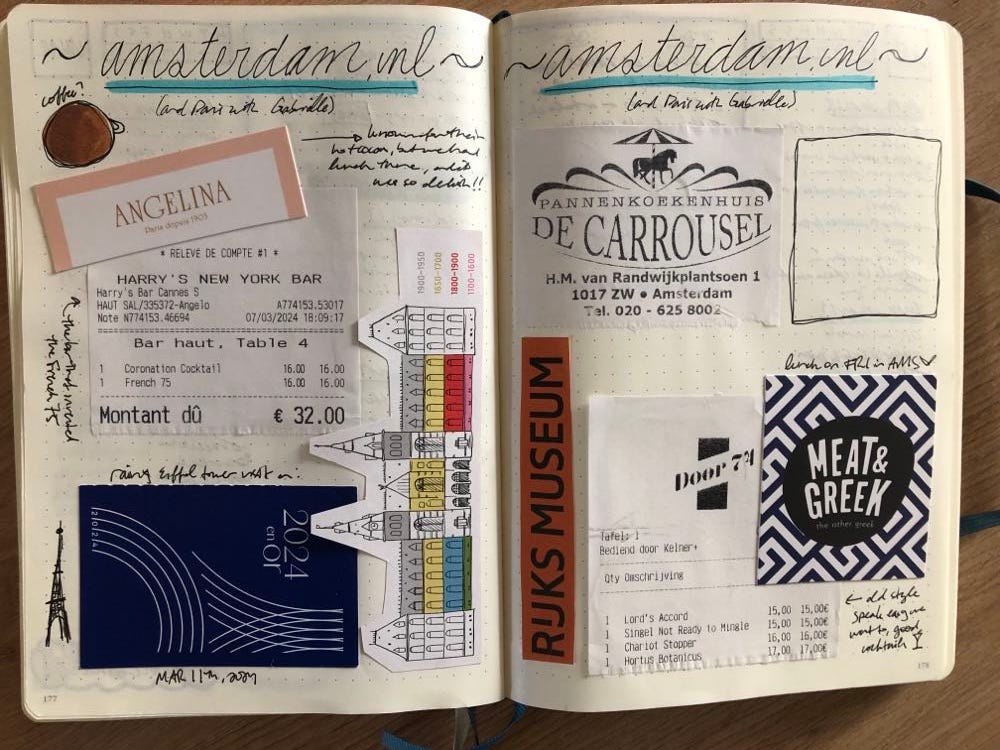 ~ amsterdam.nl ~
(and Paris with Gabrielle)
coffee?
→ known for their
hot cocoa, but we had
lunch there, and it
was so delish!!
ANGELINA
Paris depuis 1903
* RELEVÉ DE COMPTE #1 *
HARRY'S NEW YORK BAR
Harry's Bar Cannes S
HAUT SAL/335372-Angelo A774153.53017
Note N774153.46694 07/03/2024 18:09:17
Bar haut, Table 4
1 Coronation Cocktail 16.00 16.00
1 French 75 16.00 16.00
Montant dû € 32.00
↑ the bar that invented
the French 75
1900-1950
1650-1700
1800-1900
1700-1600
rainy Eiffel tower visit on:
2024
en Or
|2|0|2|4|
MAR 11th, 2024
177
~ amsterdam.nl ~
(and Paris with Gabrielle)
PANNENKOEKENHUIS
DE CARROUSEL
H.M. van Randwijkplantsoen 1
1017 ZW • Amsterdam
Tel. 020 - 625 8002
RIJKS MUSEUM
Door 74
Tafel: 1
Bediend door Kelner+
Qty Omschrijving
1 Lord's Accord 15,00 15,00€
1 Singel Not Ready to Mingle 15,00 15,00€
1 Chariot Stopper 16,00 16,00€
1 Hortus Botanicus 17,00 17,00€
lunch on FRI in AMS
MEAT&
GREEK
the other greek
← old style
speak easy we
went to, good
cocktails
178